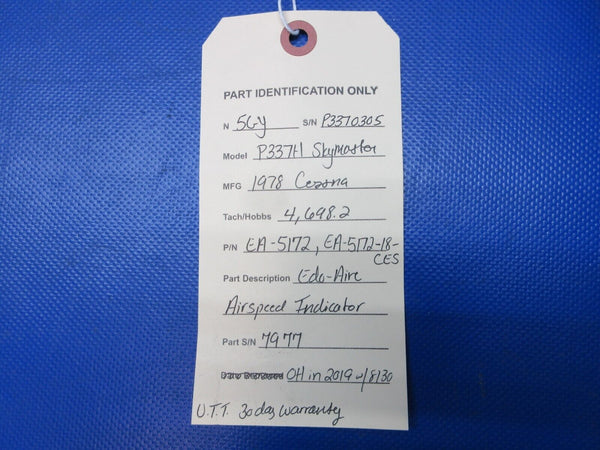 PART IDENTIFICATION ONLY
N 5GY S/N P3370305
Model P337H Skymaster
MFG 1978 Cessna
Tach/Hobbs 4,698.2
P/N EA-5172, EA-5172-18-
CES
Part Description Edo-Aire
Airspeed Indicator
Part S/N 7977
OH in 2019 w/8130
U.T.T. 30 day warranty